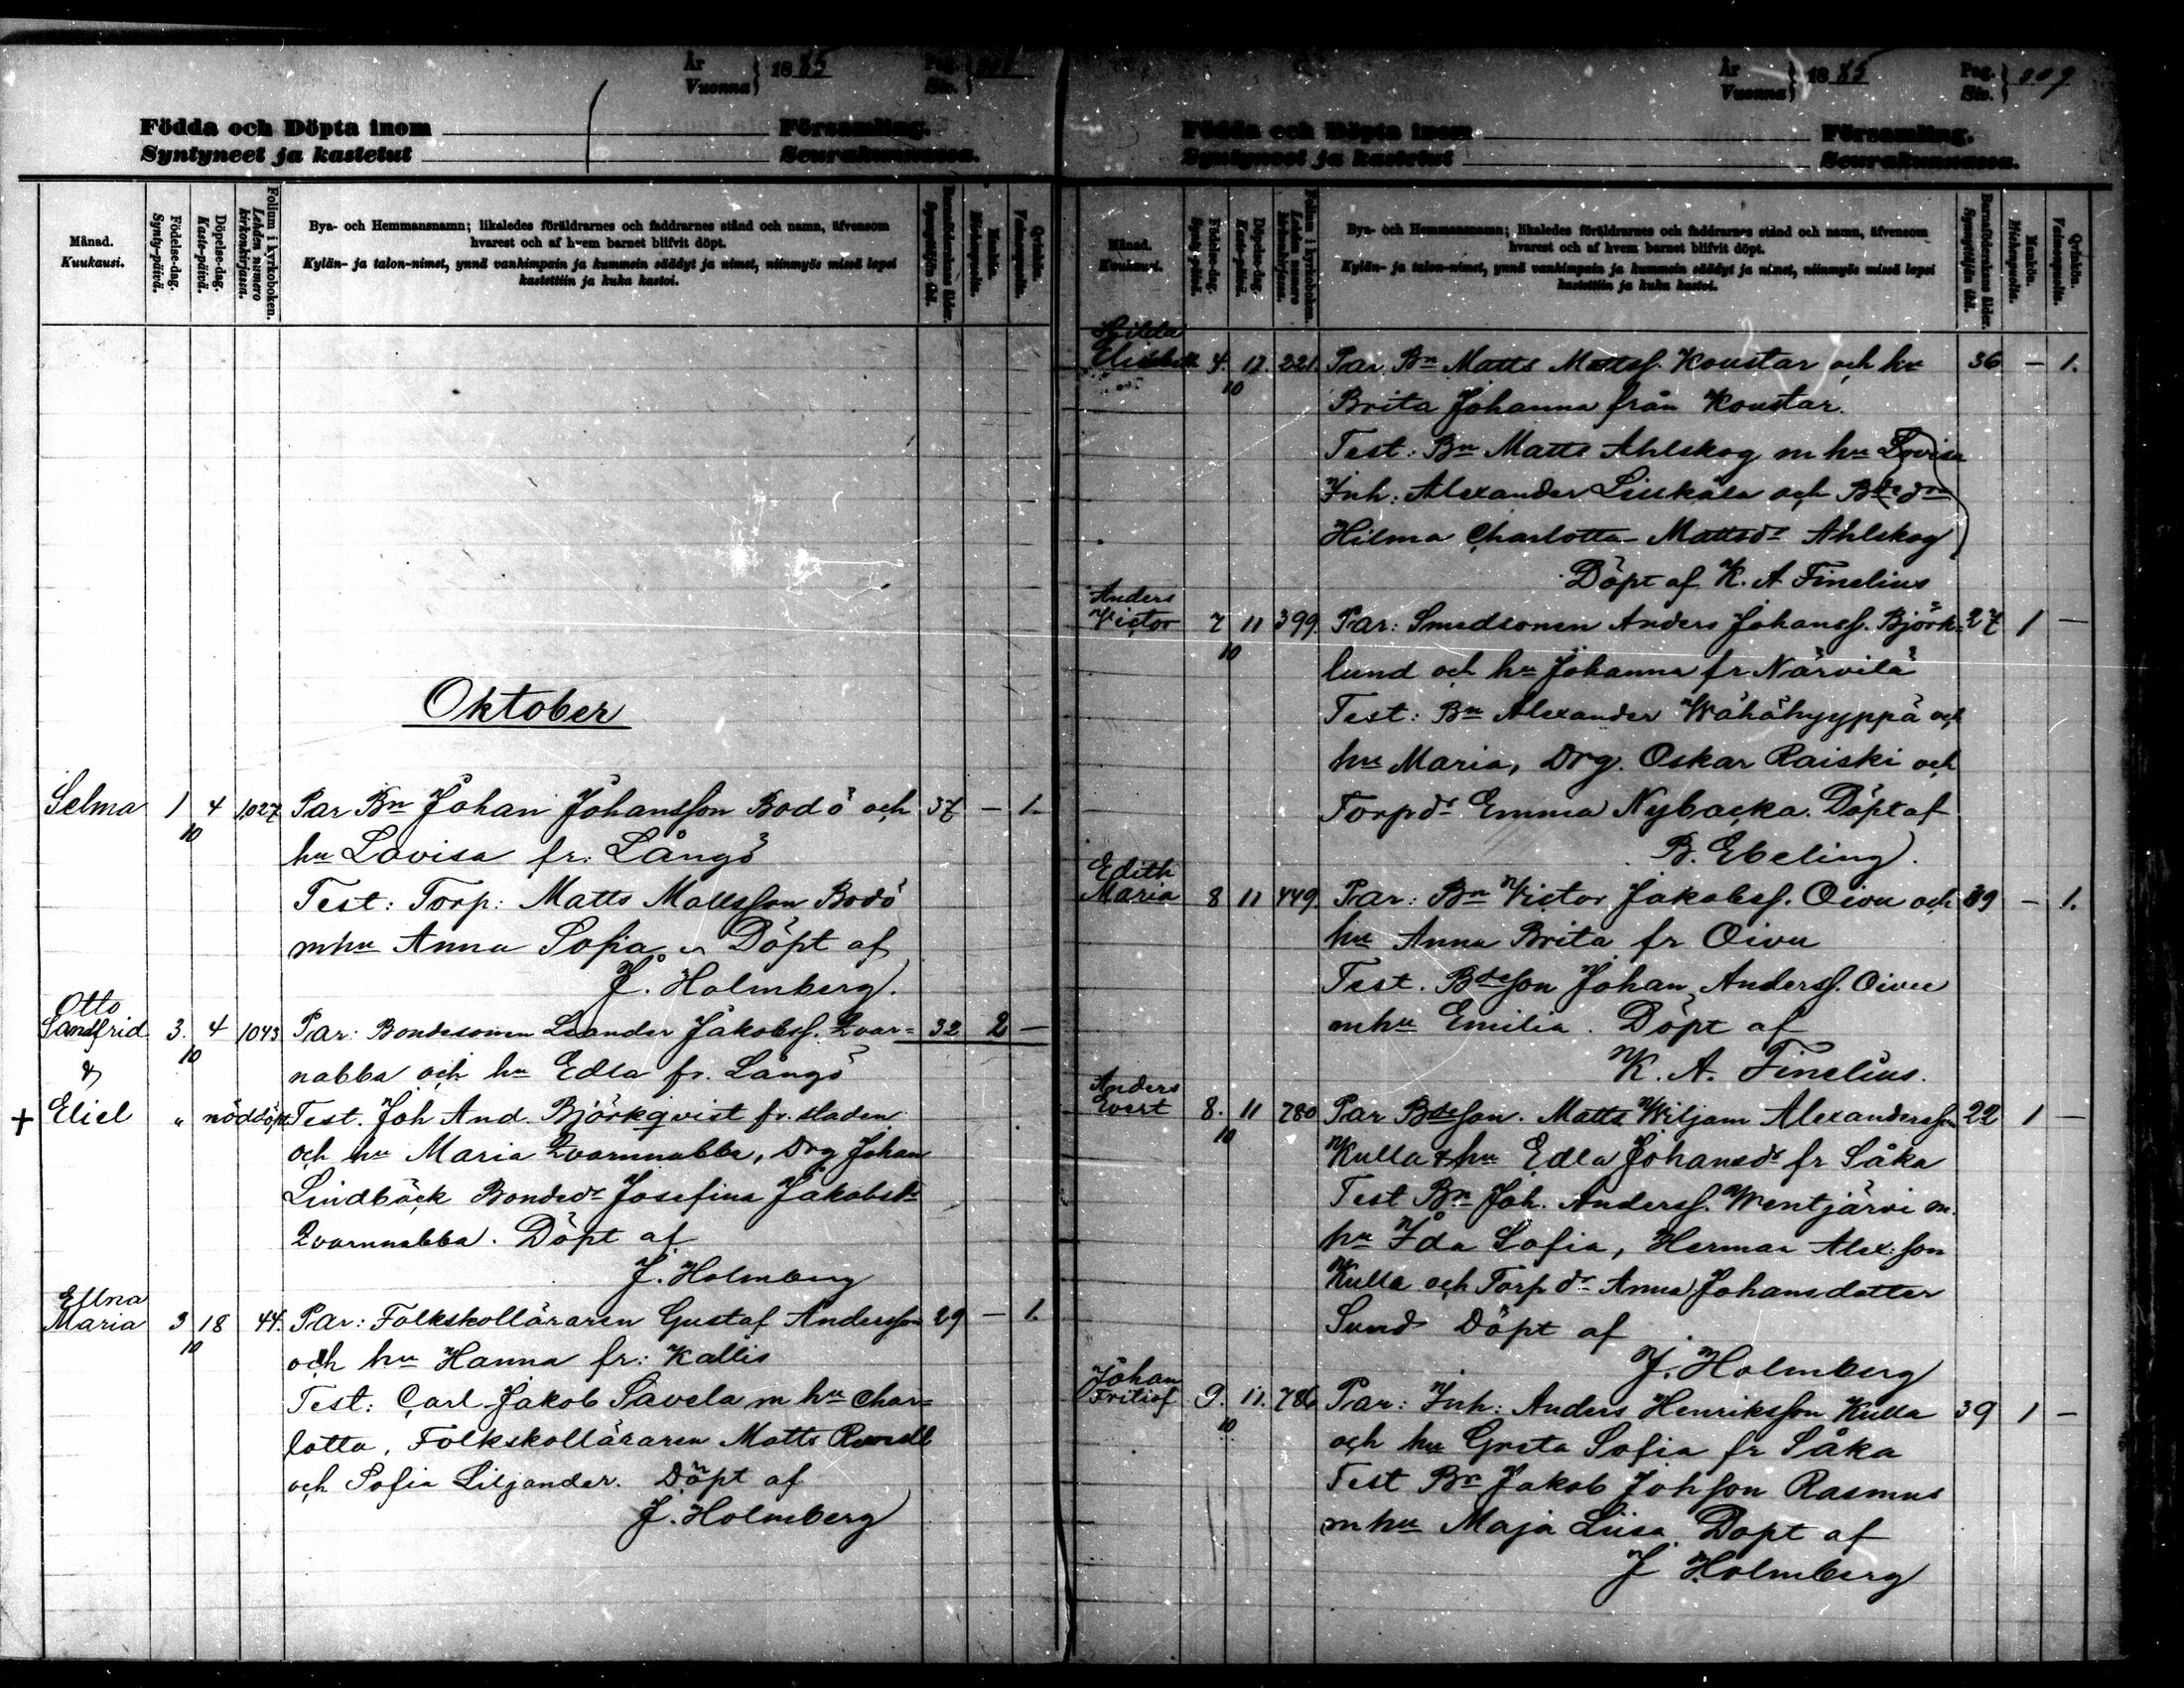 År
Vuonna } 1885
Pag.
Siv. }
Födda och Döpta inom Församling.
Syntyneet ja kastetut Seurakunnassa.
Månad.
Kuukausi.
Födelse-dag.
Synty-päivä.
Döpelse-dag.
Kaste-päivä.
Folium i kyrkoboken.
Lehden numero
kirkonkirjassa.
Bya- och Hemmansnamn; likaledes föräldrarnes och faddrarnes stånd och namn, äfvensom
hvarest och af hvem barnet blifvit döpt.
Kylän- ja talon-nimet, ynnä vanhimpain ja kummein säädyt ja nimet, niinmyös missä lapsi
kastettiin ja kuka kastoi.
Barnföderskans ålder.
Synnyttäjän ikä.
Mankön.
Miehenpuolia.
Qvinkön.
Vaimonpuolia.
Oktober
Selma 1 4 1027 Par Bn Johan Johansson Bodö och 37 – 1.
10
hu Lovisa fr: Långö
Test: Torp: Matts Mattsson Bodö
m hu Anna Sofia Döpt af
J. Holmberg.
Otto
Sandfrid 3. 4 1043 Par: Bondesonen Leander Jakobss. Qvar= 32 2 –
10
& nabba och hu Edla fr. Långö
+ Eliel " nöddöpt Test. Joh And. Björkqvist fr. staden
och hu Maria Qvarnnabba, Drg Johan
Lindbäck Bondedr Josefina Jakobsdr
Qvarnnabba. Döpt af
J. Holmberg
Ellna
Maria 3 18 44. Par: Folkskolläraren Gustaf Andersson 29 – 1.
10
och hu Hanna fr: Kallis
Test: Carl Jakob Savela m hu Char=
lotta, Folkskolläraren Matts
och Sofia Liljander. Döpt af
J. Holmberg
År
Vuonna } 1885
Pag.
Siv. } 109
Födda och Döpta inom Församling.
Syntyneet ja kastetut Seurakunnassa.
Månad.
Kuukausi.
Födelse-dag.
Synty-päivä.
Döpelse-dag.
Kaste-päivä.
Folium i kyrkoboken.
Lehden numero
kirkonkirjassa.
Bya- och Hemmansnamn; likaledes föräldrarnes och faddrarnes stånd och namn, äfvensom
hvarest och af hvem barnet blifvit döpt.
Kylän- ja talon-nimet, ynnä vanhimpain ja kummein säädyt ja nimet, niinmyös missä lapsi
kastettiin ja kuka kastoi.
Barnföderskans ålder.
Synnyttäjän ikä.
Mankön.
Miehenpuolia.
Qvinkön.
Vaimonpuolia.
Hilda
Elisabet 4. 12. 221. Par. Bn Matts Mattss. Koustar och hu 36 – 1.
10
Brita Johanna från Koustar.
Test: Bn Matts Ahlskog m hu Lovisa
Inh: Alexander Liukala och Bdedr
Hilma Charlotta Mattsdr Ahlskog
Döpt af K. A. Finelius
Anders
Victor 7 11 399. Par: Smedsonen Anders Johanss. Björk= 27 1 –
10
lund och hu Johanna fr Närvilä
Test: Bn Alexander Wähähyyppä och
hu Maria, Drg. Oskar Raiski och
Torpdr Emma Nybacka. Döpt af
B. Ebeling.
Edith
Maria 8 11 449. Par: Bn Victor Jakobss. Oivu och 39 – 1.
hu Anna Brita fr Oivu
Test. Bdeson Johan Anderss. Oivu
m hu Emilia. Döpt af
K. A. Finelius.
Anders
Evert 8. 11 780 Par Bdeson. Matts Wiljam Alexandersson 22 1 –
10
Kulla & hu Edla Johansdr fr Såka
Test Bn Joh. Anderss. Wentjärvi m.
hu Ida Sofia, Herman Alex:son
Kulla och Torpdr Anna Johansdotter
Sund Döpt af
J. Holmberg
Johan
Fritiof 9. 11. 786 Par: Inh: Anders Henriksson Kulla 39 1 –
10
och hu Greta Sofia fr Såka
Test Bn Jakob Johsson Rasmus
m hu Maja Liisa. Döpt af
J Holmberg